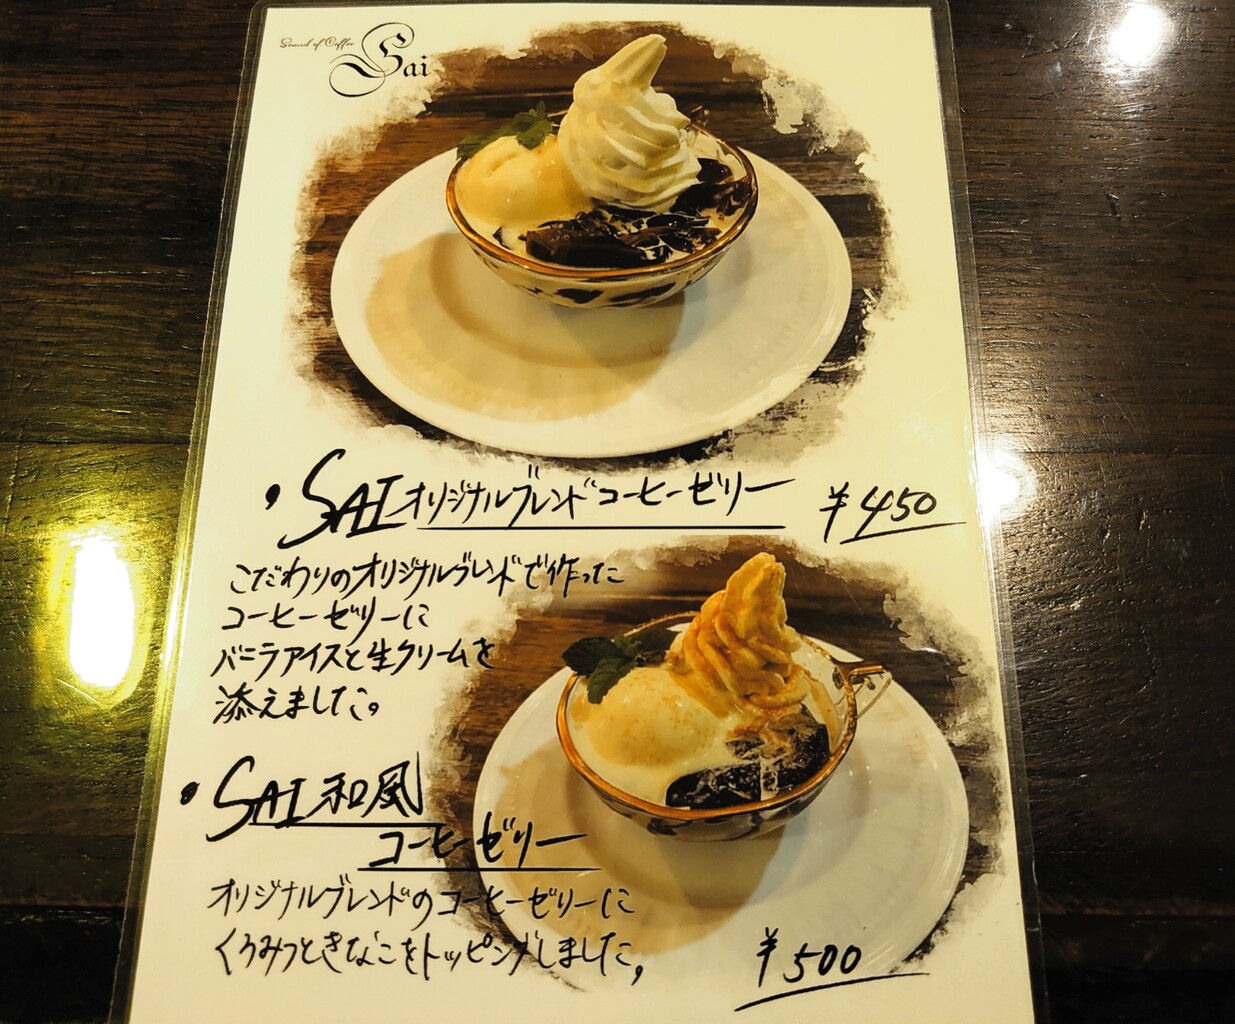 Sound of Coffee
Sai
・SAIオリジナルブレンドコーヒーゼリー ¥450
こだわりのオリジナルブレンドで作った
コーヒーゼリーに
バニラアイスと生クリームを
添えました。
・SAI和風
コーヒーゼリー
オリジナルブレンドのコーヒーゼリーに
くろみつときなこをトッピングしました。
¥500